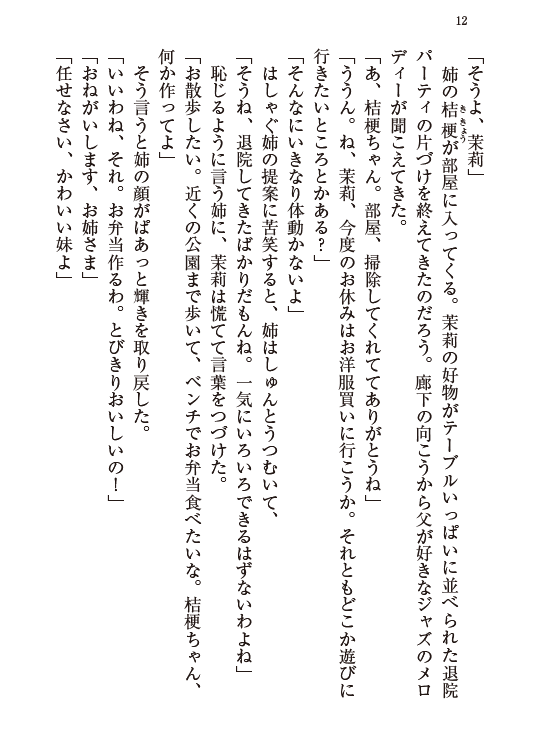 12
「そうよ、茉莉」
　姉の桔梗が部屋に入ってくる。茉莉の好物がテーブルいっぱいに並べられた退院
ききょう
パーティの片づけを終えてきたのだろう。廊下の向こうから父が好きなジャズのメロ
ディーが聞こえてきた。
「あ、桔梗ちゃん。部屋、掃除してくれててありがとうね」
「ううん。ね、茉莉、今度のお休みはお洋服買いに行こうか。それともどこか遊びに
行きたいところとかある？」
「そんなにいきなり体動かないよ」
　はしゃぐ姉の提案に苦笑すると、姉はしゅんとうつむいて、
「そうね、退院してきたばかりだもんね。一気にいろいろできるはずないわよね」
　恥じるように言う姉に、茉莉は慌てて言葉をつづけた。
「お散歩したい。近くの公園まで歩いて、ベンチでお弁当食べたいな。桔梗ちゃん、
何か作ってよ」
　そう言うと姉の顔がぱあっと輝きを取り戻した。
「いいわね、それ。お弁当作るわ。とびきりおいしいの！」
「おねがいします、お姉さま」
「任せなさい、かわいい妹よ」